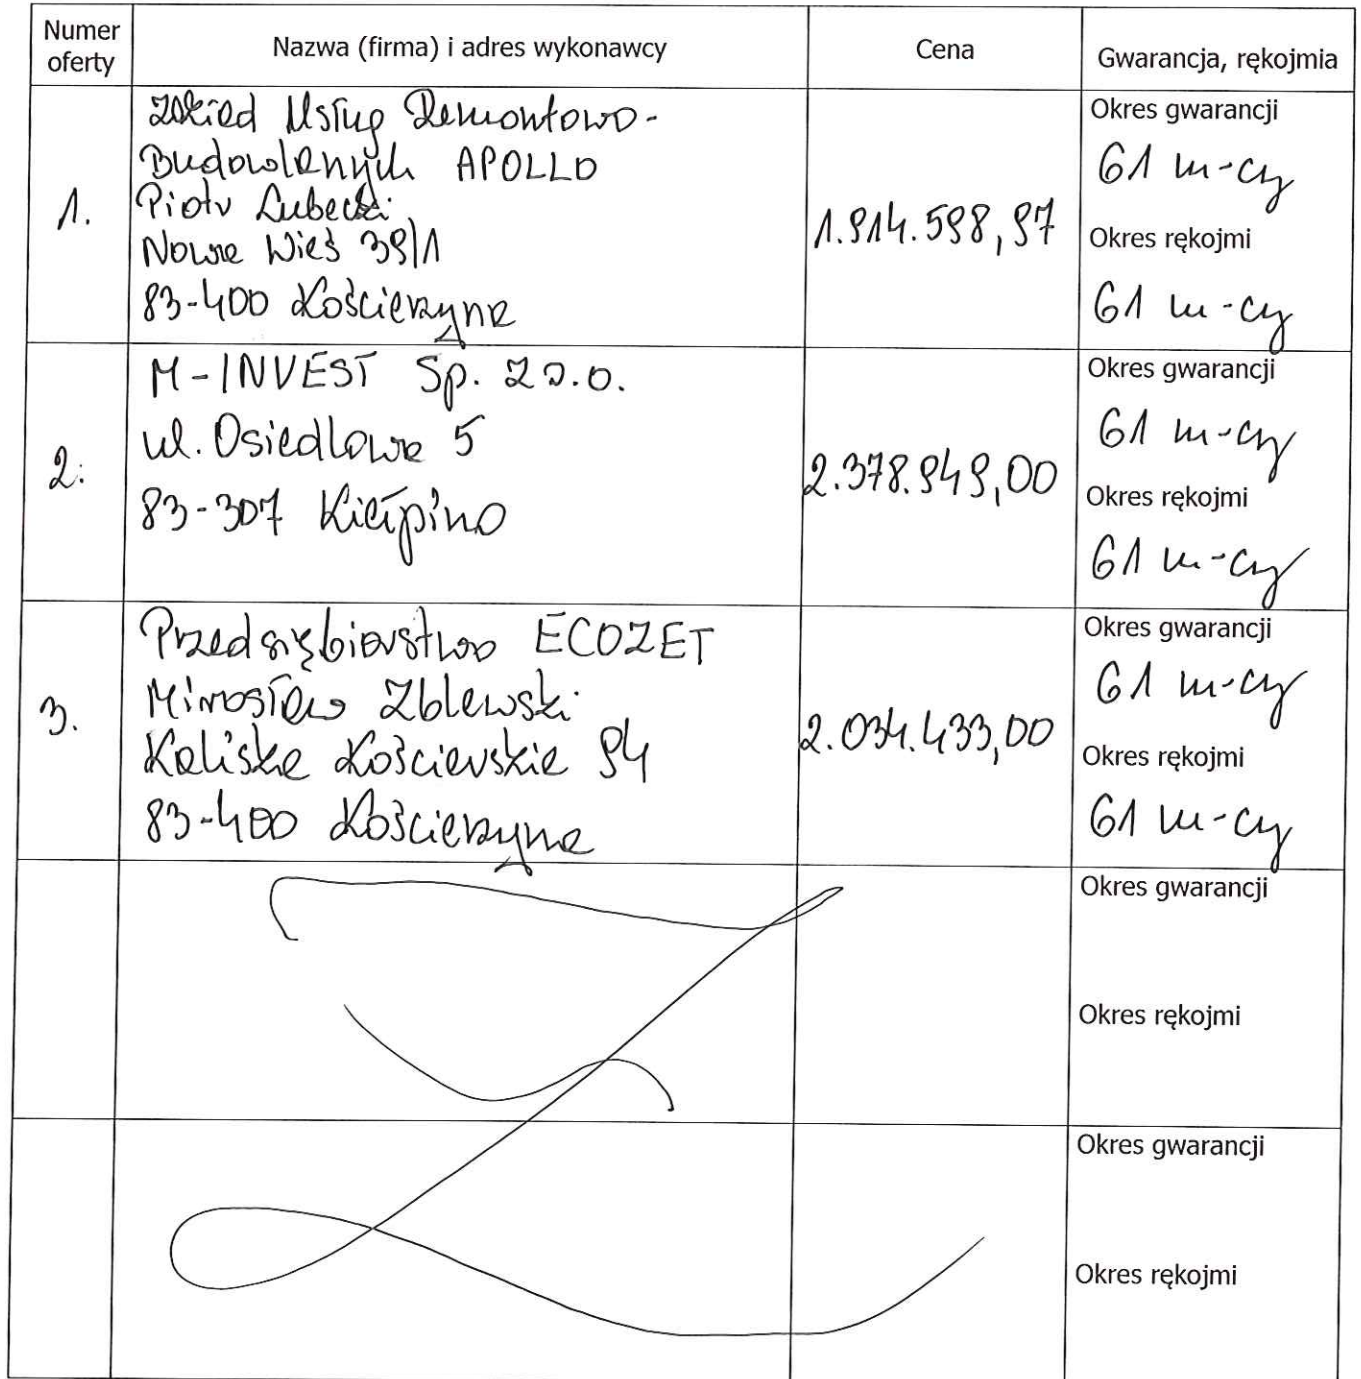 Numer
oferty
Nazwa (firma) i adres wykonawcy
Cena
Gwarancja, rękojmia
1.
Zakład Usług Remontowo-
Budowlanych APOLLO
Piotr Lubecki
Nowa Wieś 39/1
83-400 Kościerzyna
1.914.598,97
Okres gwarancji
61 m-cy
Okres rękojmi
61 m-cy
2.
M-INVEST Sp. z o.o.
ul. Osiedlowa 5
83-307 Kiełpino
2.378.949,00
Okres gwarancji
61 m-cy
Okres rękojmi
61 m-cy
3.
Przedsiębiorstwo ECOZET
Mirosław Zblewski
Kaliska Kościerskie 94
83-400 Kościerzyna
2.034.433,00
Okres gwarancji
61 m-cy
Okres rękojmi
61 m-cy
Okres gwarancji
Okres rękojmi
Okres gwarancji
Okres rękojmi